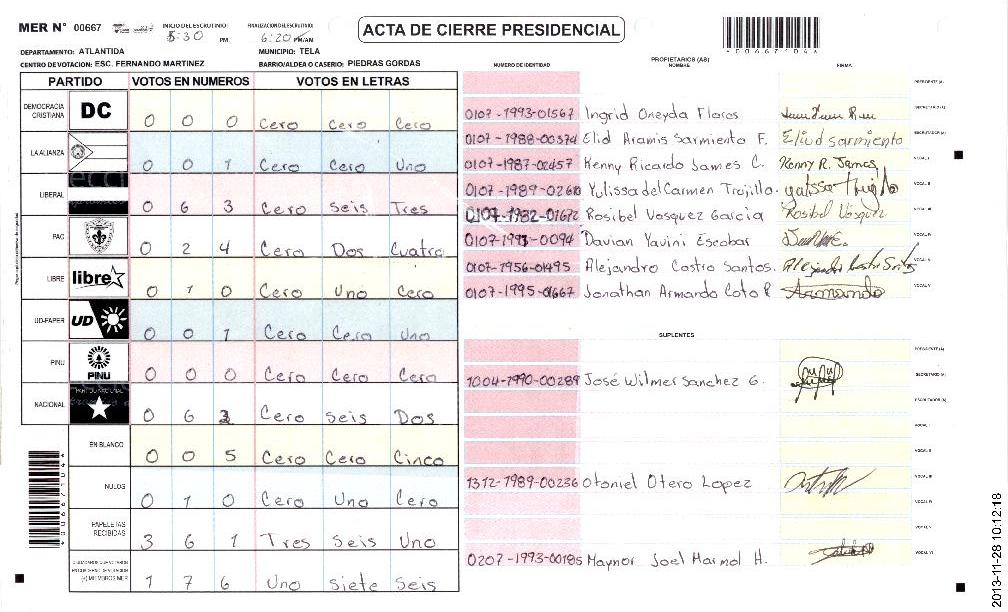 MER N° 00667
INICIO DEL ESCRUTINIO: 5:30 PM
FINALIZACION DEL ESCRUTINIO: 6:20 PM/AM
ACTA DE CIERRE PRESIDENCIAL
DEPARTAMENTO: ATLANTIDA
MUNICIPIO: TELA
CENTRO DE VOTACION: ESC. FERNANDO MARTINEZ
BARRIO/ALDEA O CASERIO: PIEDRAS GORDAS
PARTIDO VOTOS EN NUMEROS VOTOS EN LETRAS
DEMOCRACIA CRISTIANA DC 0 0 0 Cero Cero Cero
LA ALIANZA 0 0 1 Cero Cero Uno
LIBERAL 0 6 3 Cero Seis Tres
PAC 0 2 4 Cero Dos Cuatro
LIBRE libre 0 1 0 Cero Uno Cero
UD-FAPER UD 0 0 1 Cero Cero Uno
PINU PINU 0 0 0 Cero Cero Cero
NACIONAL 0 6 2 Cero Seis Dos
EN BLANCO 0 0 5 Cero Cero Cinco
NULOS 0 1 0 Cero Uno Cero
PAPELETAS RECIBIDAS 3 6 1 Tres Seis Uno
(+) MIEMBROS MER 1 7 6 Uno Siete Seis
PROPIETARIOS (AS)
NUMERO DE IDENTIDAD NOMBRE FIRMA
PRESIDENTE (A)
0107-1993-01567 Ingrid Oneyda Flores SECRETARIO (A)
0107-1988-00374 Elid Aramis Sarmiento F. Eliud Sarmiento ESCRUTADOR (A)
0107-1987-02457 Kenny Ricardo James C. Kenny R. James VOCAL I
0107-1989-02610 Yulissa del Carmen Trujillo. VOCAL II
0107-1982-01672 Rosibel Vasquez Garcia Rosibel Vasquez VOCAL III
0107-1993-0094 Davian Yavini Escobar VOCAL IV
0107-1956-01495 Alejandro Castro Santos. VOCAL V
0107-1995-01667 Jonathan Armando Coto R Armando VOCAL VI
SUPLENTES
PRESIDENTE (A)
1004-1990-00289 José Wilmer Sanchez G. SECRETARIO (A)
ESCRUTADOR (A)
VOCAL I
VOCAL II
1312-1989-00236 Otoniel Otero Lopez VOCAL III
VOCAL IV
VOCAL V
0207-1993-00185 Maynor Joel Marmol H. VOCAL VI
2013-11-28 10:12:18